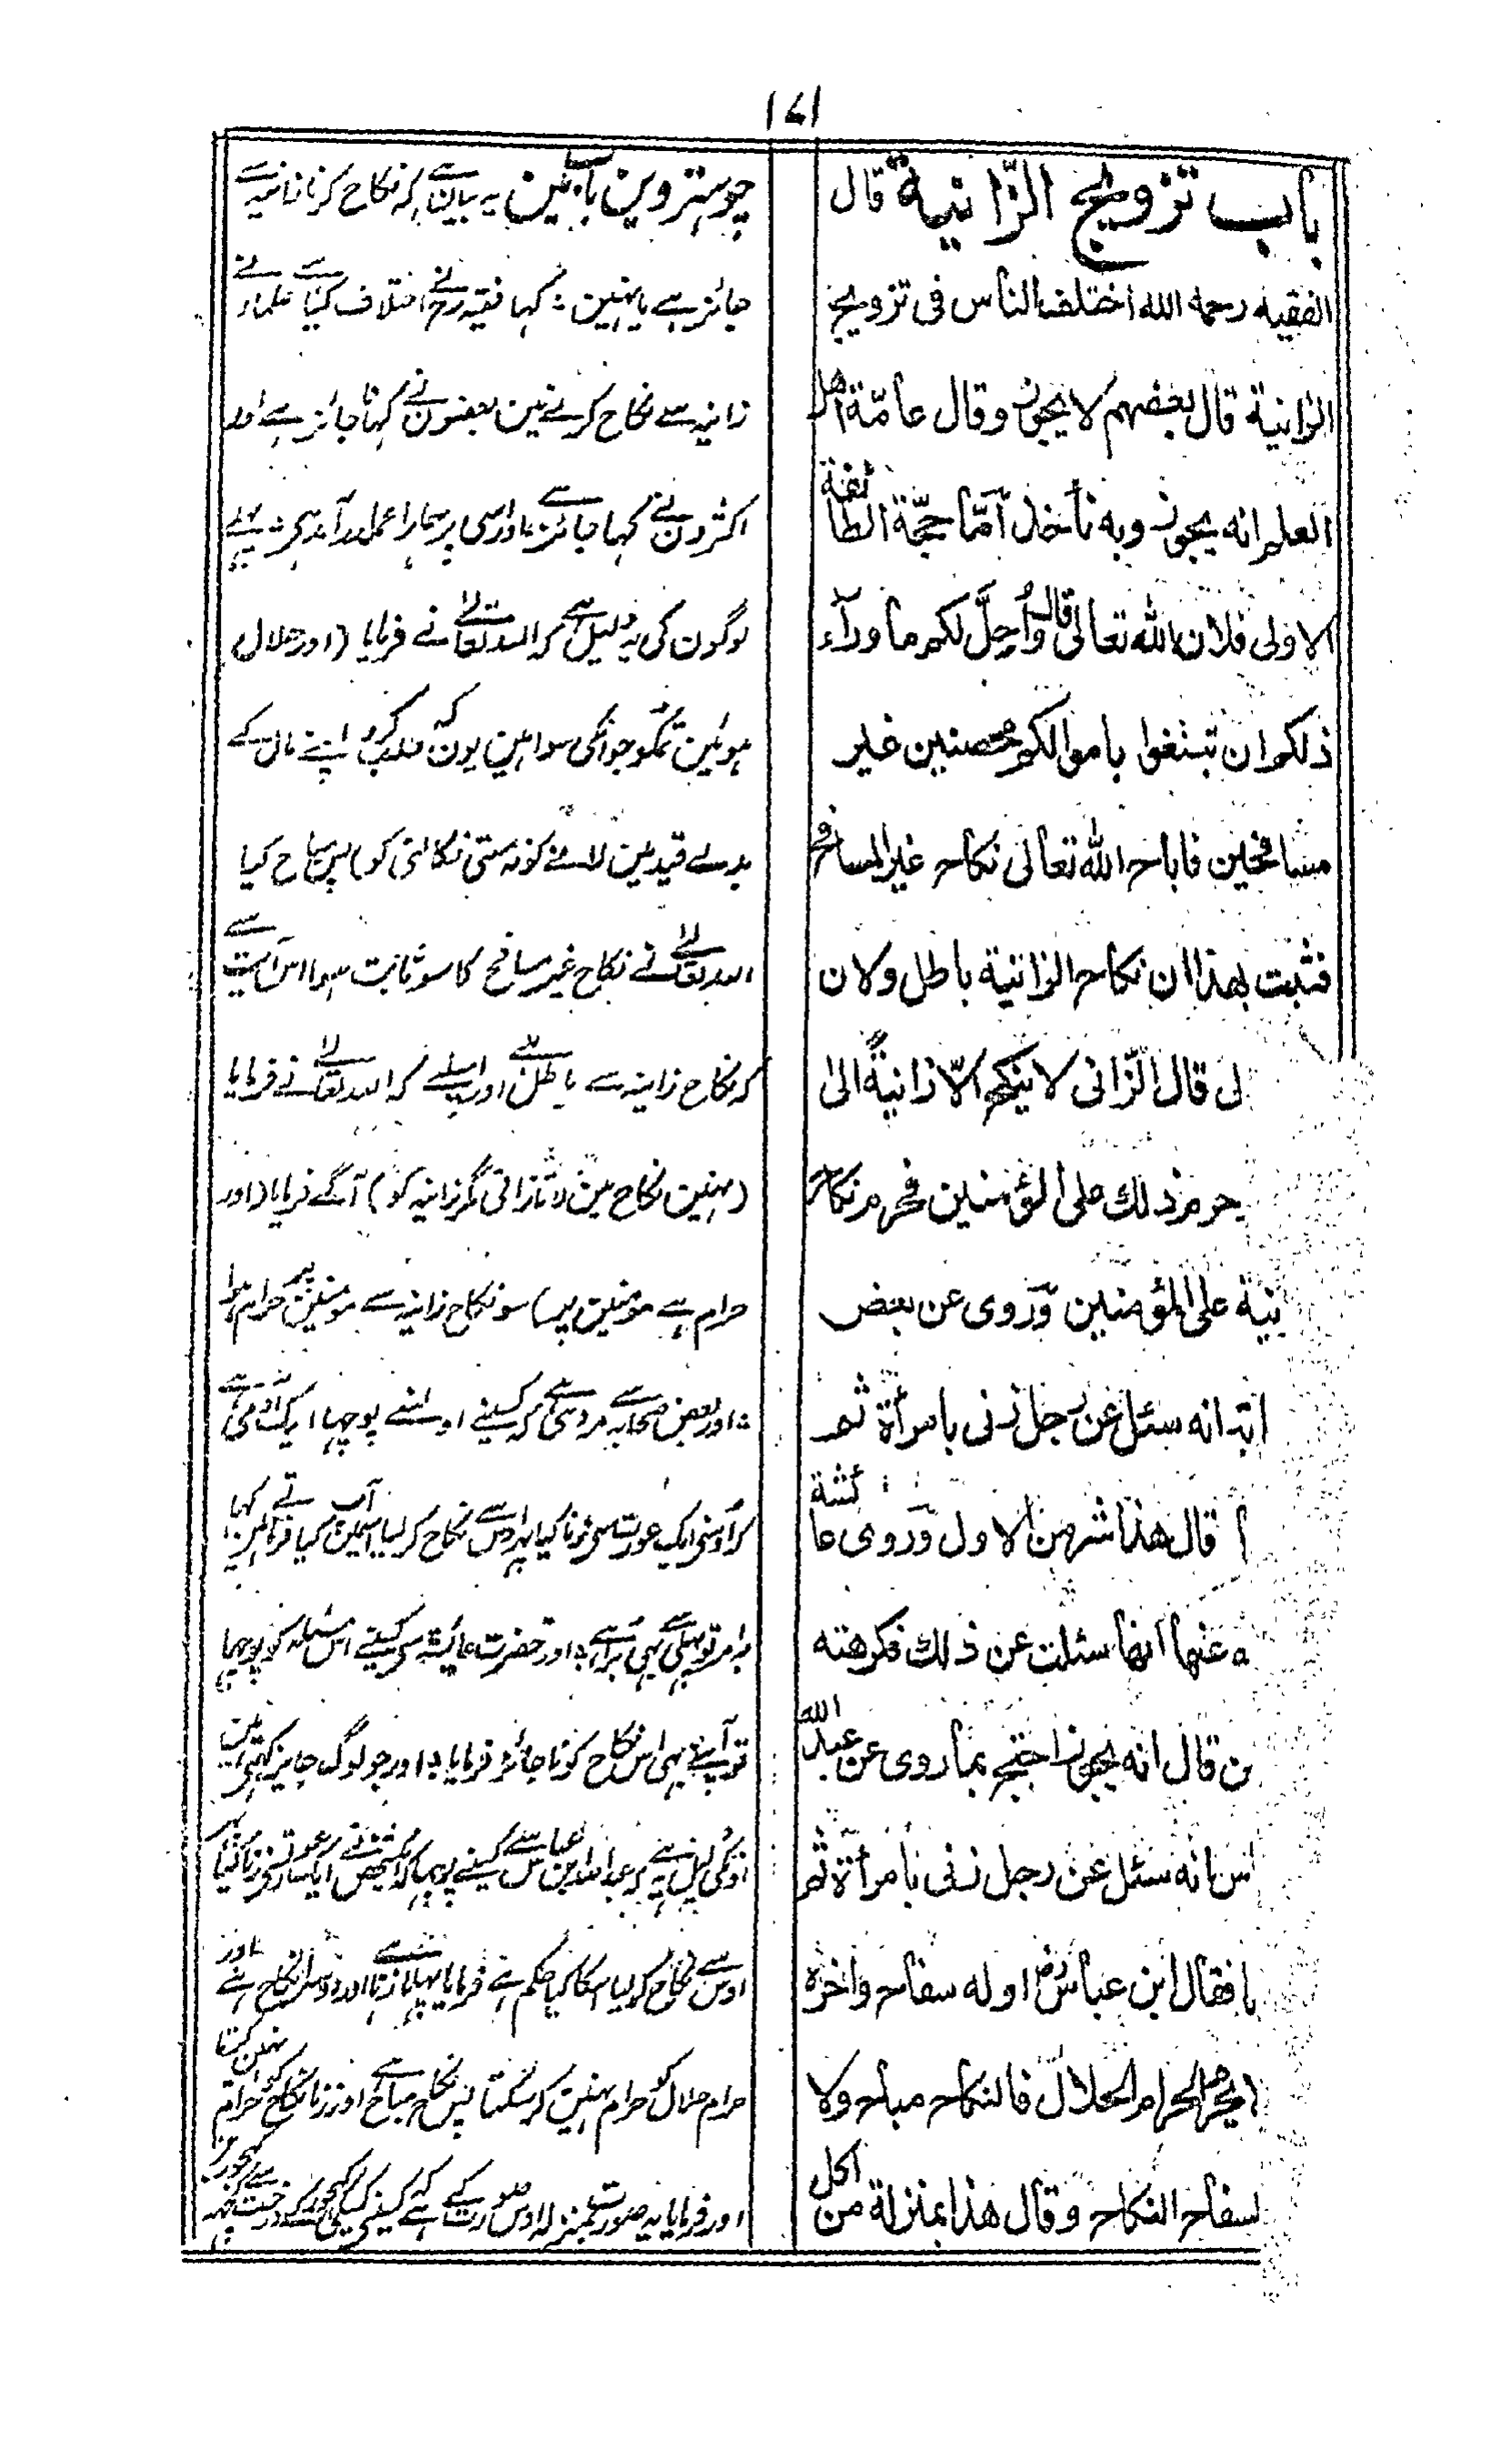 ۱۷۱
باب تزويج الزّانية قال
الفقيه رحمه الله اختلف الناس فى تزويج
الزانية قال بعضهم لا يجوز وقال عامّة اهل
العلم انه يجوز وبه نأخذ اَمّا حجّة الطائفة
الاولى فلان الله تعالى قال وَاُحِلَّ لكم ما ورآء
ذلكم ان تبتغوا باموالكم محصنين غير
مسافحين فاباح الله تعالى نكاح غير المسافح
فثبت بهذا ان نكاح الزانية باطل ولان
لى قال الزّانى لا ينكح الّا زانيةً الى
حرم ذلك على المؤمنين فحرم نكاح
نية على المؤمنين وَروى عن بعض
انه سئل عن رجل زنى بامرأة ثم
قال هذا شر من الاول وَروى عائشة
ه عنها انها سئلت عن ذلك فكرهته
ن قال انه يجوز احتج بما روى عن عبد الله
اس انه سئل عن رجل زنى بامرأة ثم
ا فقال ابن عباس رض اوله سفاح واخره
يحرم الحرام الحلال فالنكاح مباح ولا
لسفاح النكاح وقال هذا بمنزلة من اكل
چوہتروین باب مین یہ بیان ہے کہ نکاح کرنا زانیہ سے
جائز ہے یا نہین : کہا فقیہ رح نے اختلاف کیا ہے علماء نے
زانیہ سے نکاح کرنے مین بعضون نے کہا ناجائز ہے اور
اکثرون نے کہا جائز ہے اور اسی پر ہمارا عملدرآمد ہے پہلے
لوگون کی یہ دلیل ہے کہ اللہ تعالےٰ نے فرمایا (اور حلال
ہوئین تمکو جو انکی سوا ہین یون کہ طلب کرو اپنے مال کے
بدلے قید مین لانے کو نہ مستی نکالنی کو) پس مباح کیا
اللہ تعالےٰ نے نکاح غیر مسافح کا سو ثابت ہوا اس آیت سے
کہ نکاح زانیہ سے باطل ہے اور اسلیے کہ اللہ تعالےٰ نے فرمایا
(نہین نکاح مین لاتا زانی مگر زانیہ کو) آگے فرمایا (اور
حرام ہے مؤمنین پر) سو نکاح زانیہ سے مؤمنین پر حرام ہوا
اور بعض صحابہ سے مروی ہے کہ کسینے اونسے پوچہا ایک آدمی
کہ اوسنی ایک عورت سی زنا کیا پہر اوس سے نکاح کر لیا آپ نے کہا
امر تو پہلے سے بہی برا ہے اور حضرت عائشہ سی کسینے اس مسئلہ کو پوچہا
تو آپنے بہی اس نکاح کو ناجائز فرمایا اور جو لوگ جایز کہتی ہین
اونکی دلیل یہ ہے کہ عبداللہ ابن عباس سے کسینے پوچہا کہ ایک شخص نے
اوس سے نکاح کر لیا اسکا کیا حکم ہے فرمایا پہلا زنا ہے اور دوسرا نکاح ہے اور
حرام حلال کو حرام نہین کر سکتا پس نکاح مباح ہے اور زنا نکاح کو حرام نہین کرتا
اور فرمایا یہ صورت بمنزلہ اوس صورت کے ہے